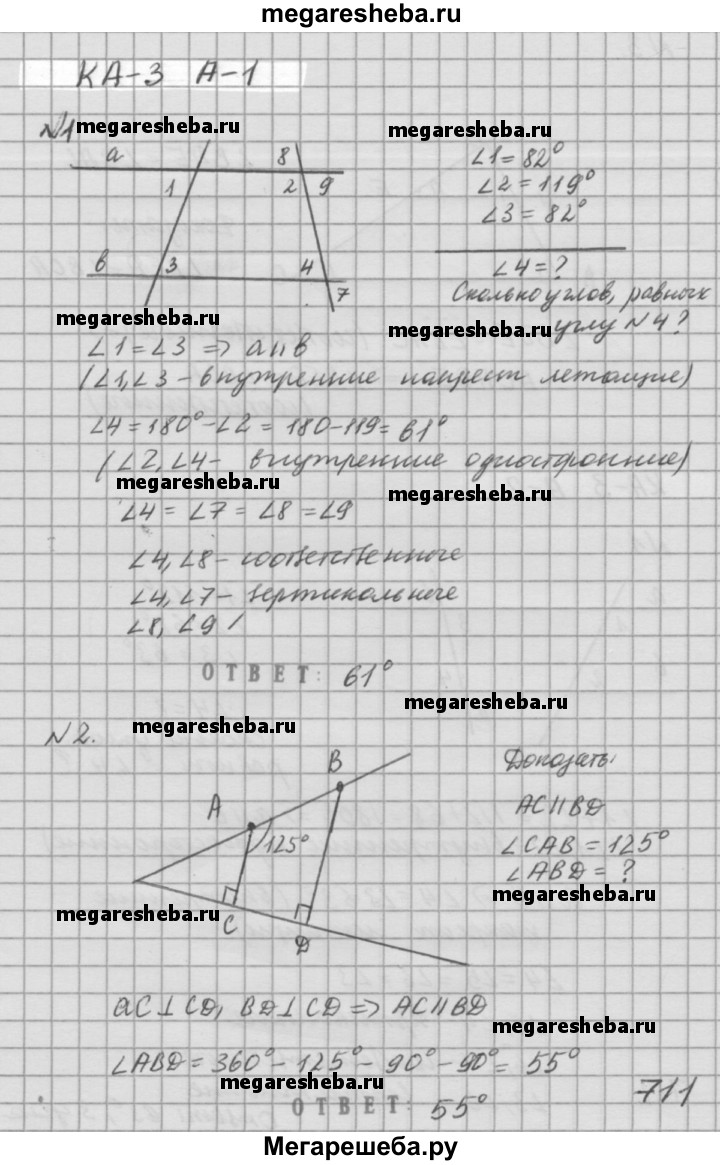 megaresheba.ru
КА-3 А-1
№1
megaresheba.ru
megaresheba.ru
a 1 8 2 9
в 3 4 7
∠1 = 82°
∠2 = 119°
∠3 = 82°
∠4 = ?
Сколько углов, равных
углу №4?
megaresheba.ru
megaresheba.ru
∠1 = ∠3 => a II в
(∠1, ∠3 - внутренние накрест лежащие)
∠4 = 180° - ∠2 = 180 - 119 = 61°
(∠2, ∠4 - внутренние односторонние)
megaresheba.ru
megaresheba.ru
∠4 = ∠7 = ∠8 = ∠9
∠4, ∠8 - соответственные
∠4, ∠7 - вертикальные
∠8, ∠9 /
ОТВЕТ: 61°
megaresheba.ru
№2.
megaresheba.ru
B
A
125°
C
D
Доказать:
AC II BD
∠CAB = 125°
∠ABD = ?
megaresheba.ru
megaresheba.ru
aC ⊥ CD, BD ⊥ CD => AC II BD
megaresheba.ru
∠ABD = 360° - 125° - 90° - 90° = 55°
megaresheba.ru
ОТВЕТ: 55°
711
Мегарешеба.ру